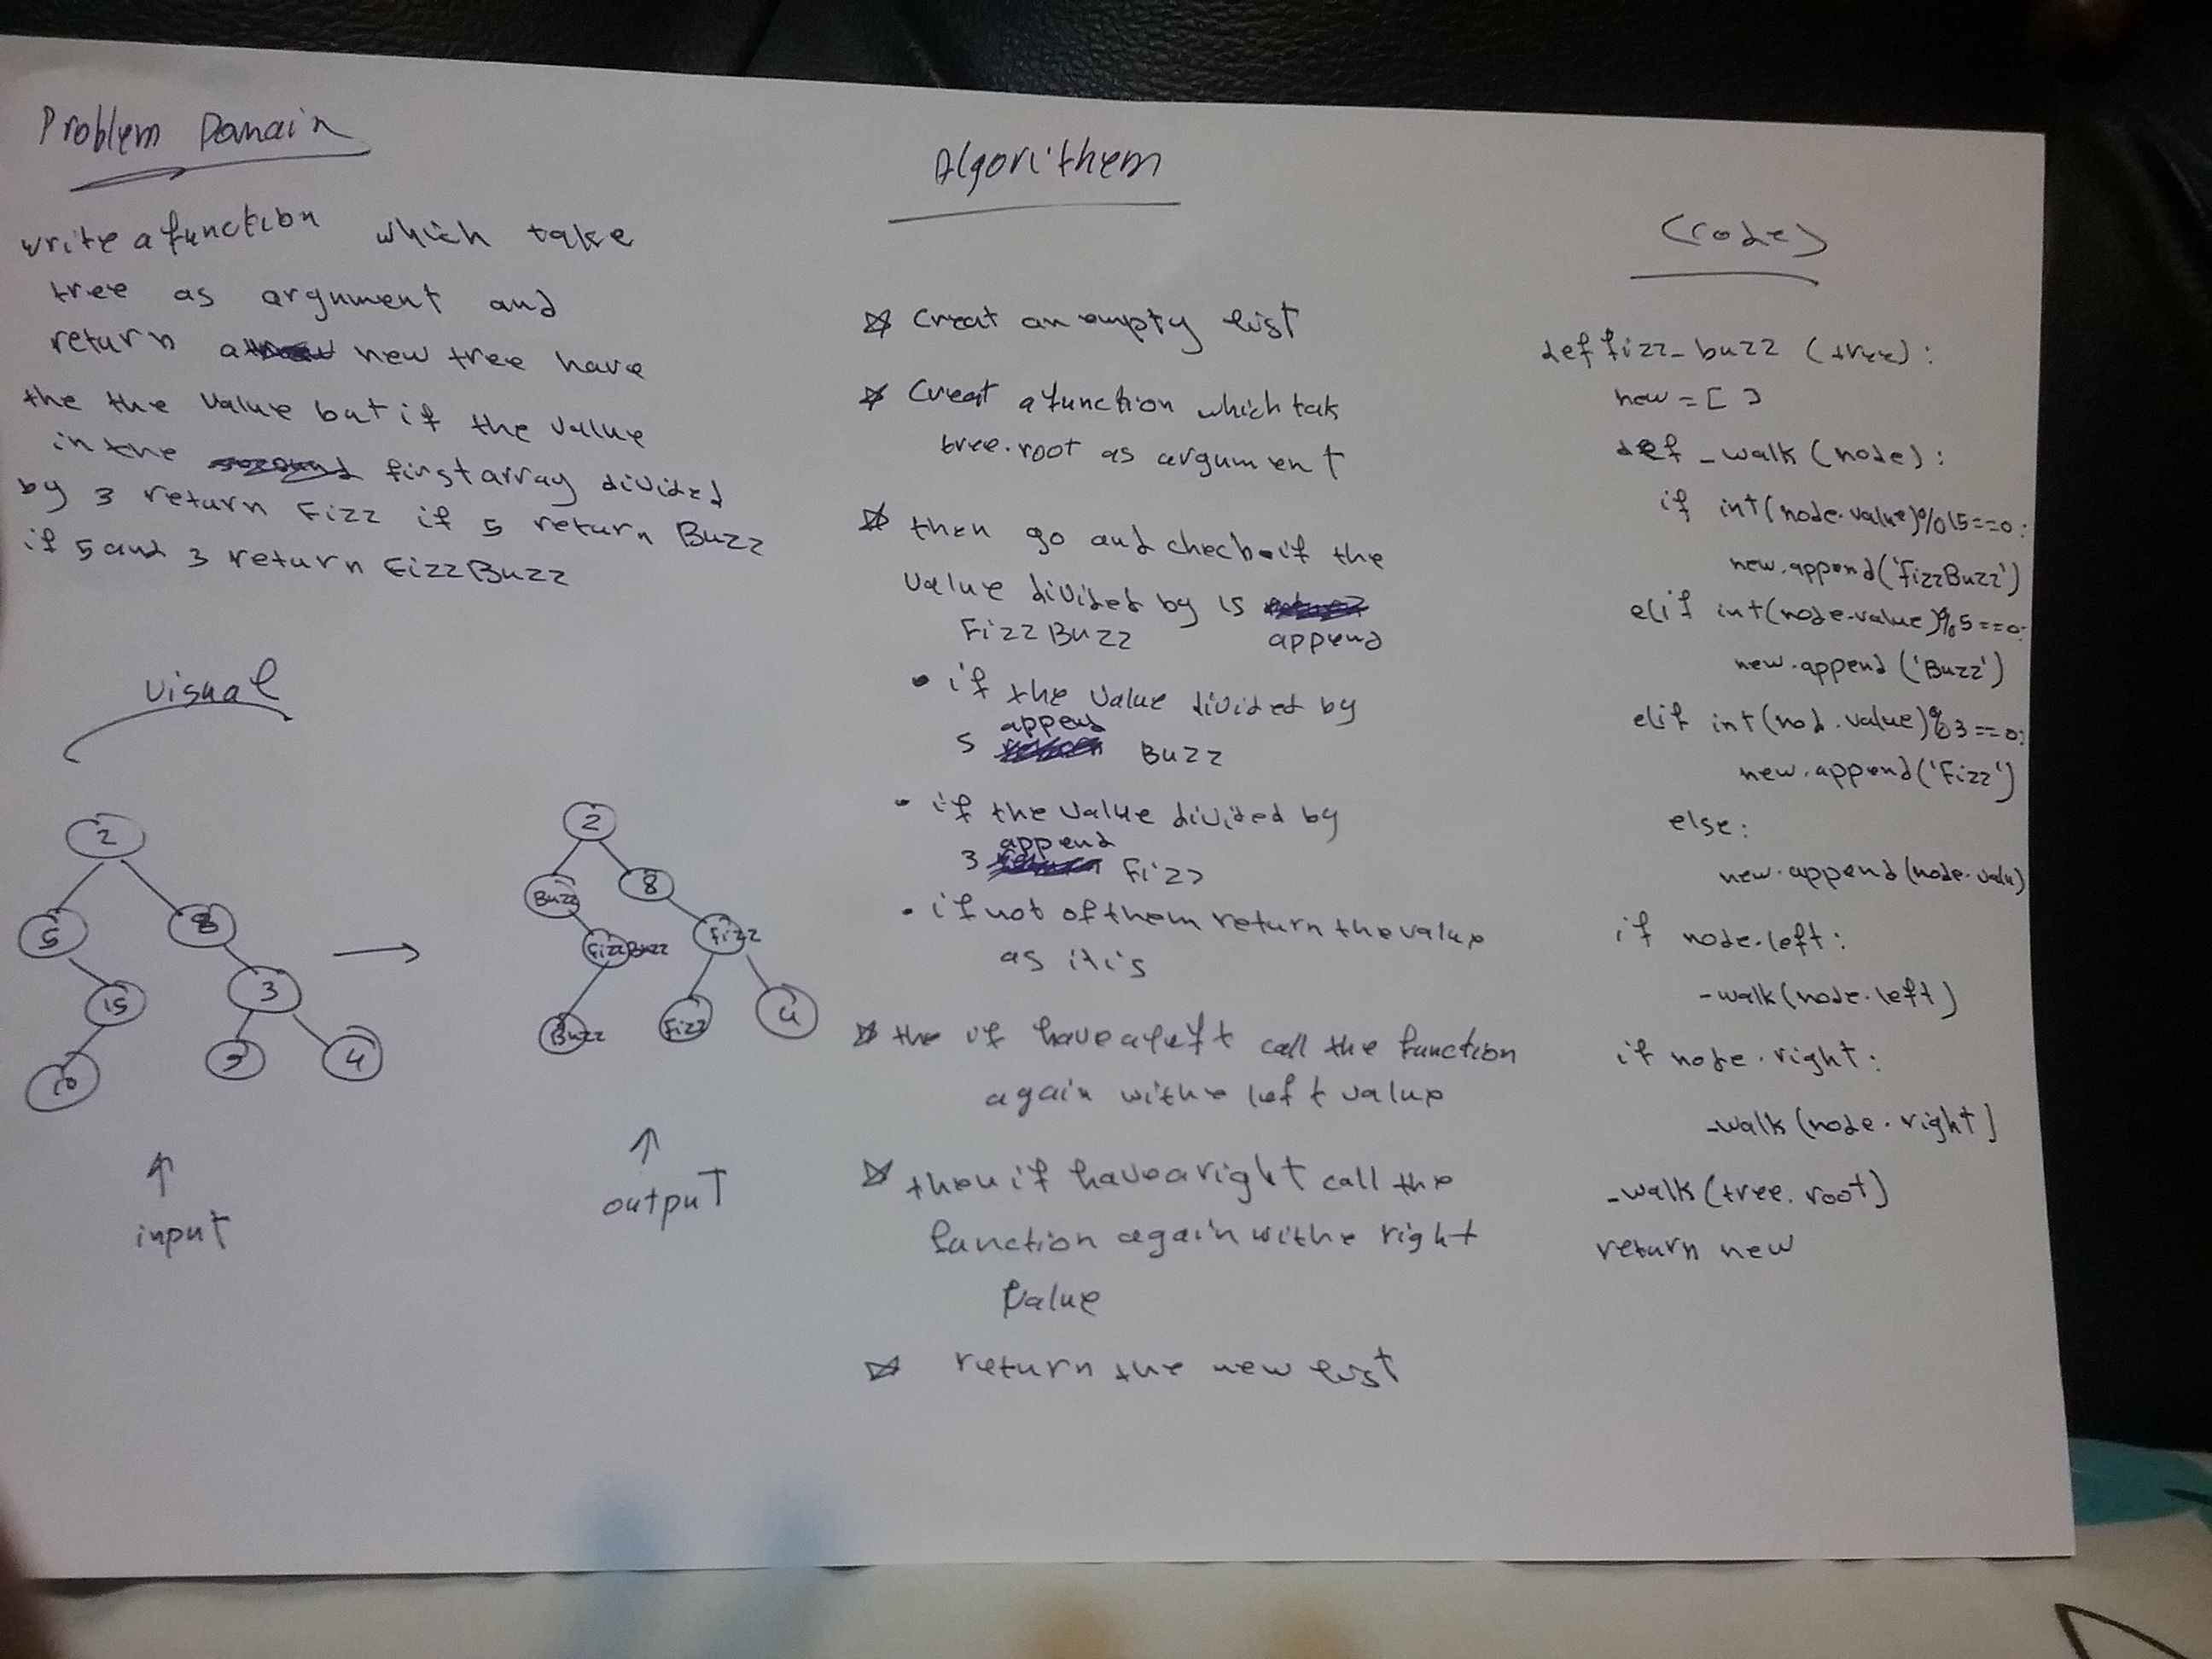 Problem Domain
write a function which take
tree as argument and
return a new tree have
the the value but if the value
in the first array divided
by 3 return Fizz if 5 return Buzz
if 5 and 3 return FizzBuzz
visual
2
5
8
15
3
10
9
4
input
2
Buzz
8
FizzBuzz
Fizz
Buzz
Fizz
4
output
Algorithem
creat an empty list
Creat a function which tak
tree.root as argument
then go and check if the
value divided by 15
FizzBuzz append
• if the value divided by
append
5 Buzz
• if the value divided by
append
3 Fizz
• if not of them return the value
as it is
the if have a left call the function
again withe left value
then if have a right call the
function again withe right
value
return the new list
(code)
def fizz_buzz (tree):
new = [ ]
def _walk (node):
if int(node.value)%15==0:
new.append('FizzBuzz')
elif int(node.value)%5==0:
new.append ('Buzz')
elif int(nod.value)%3==0:
new.append('Fizz')
else:
new.append(node.valu)
if node.left:
_walk(node.left)
if node.right:
_walk(node.right)
_walk(tree.root)
return new